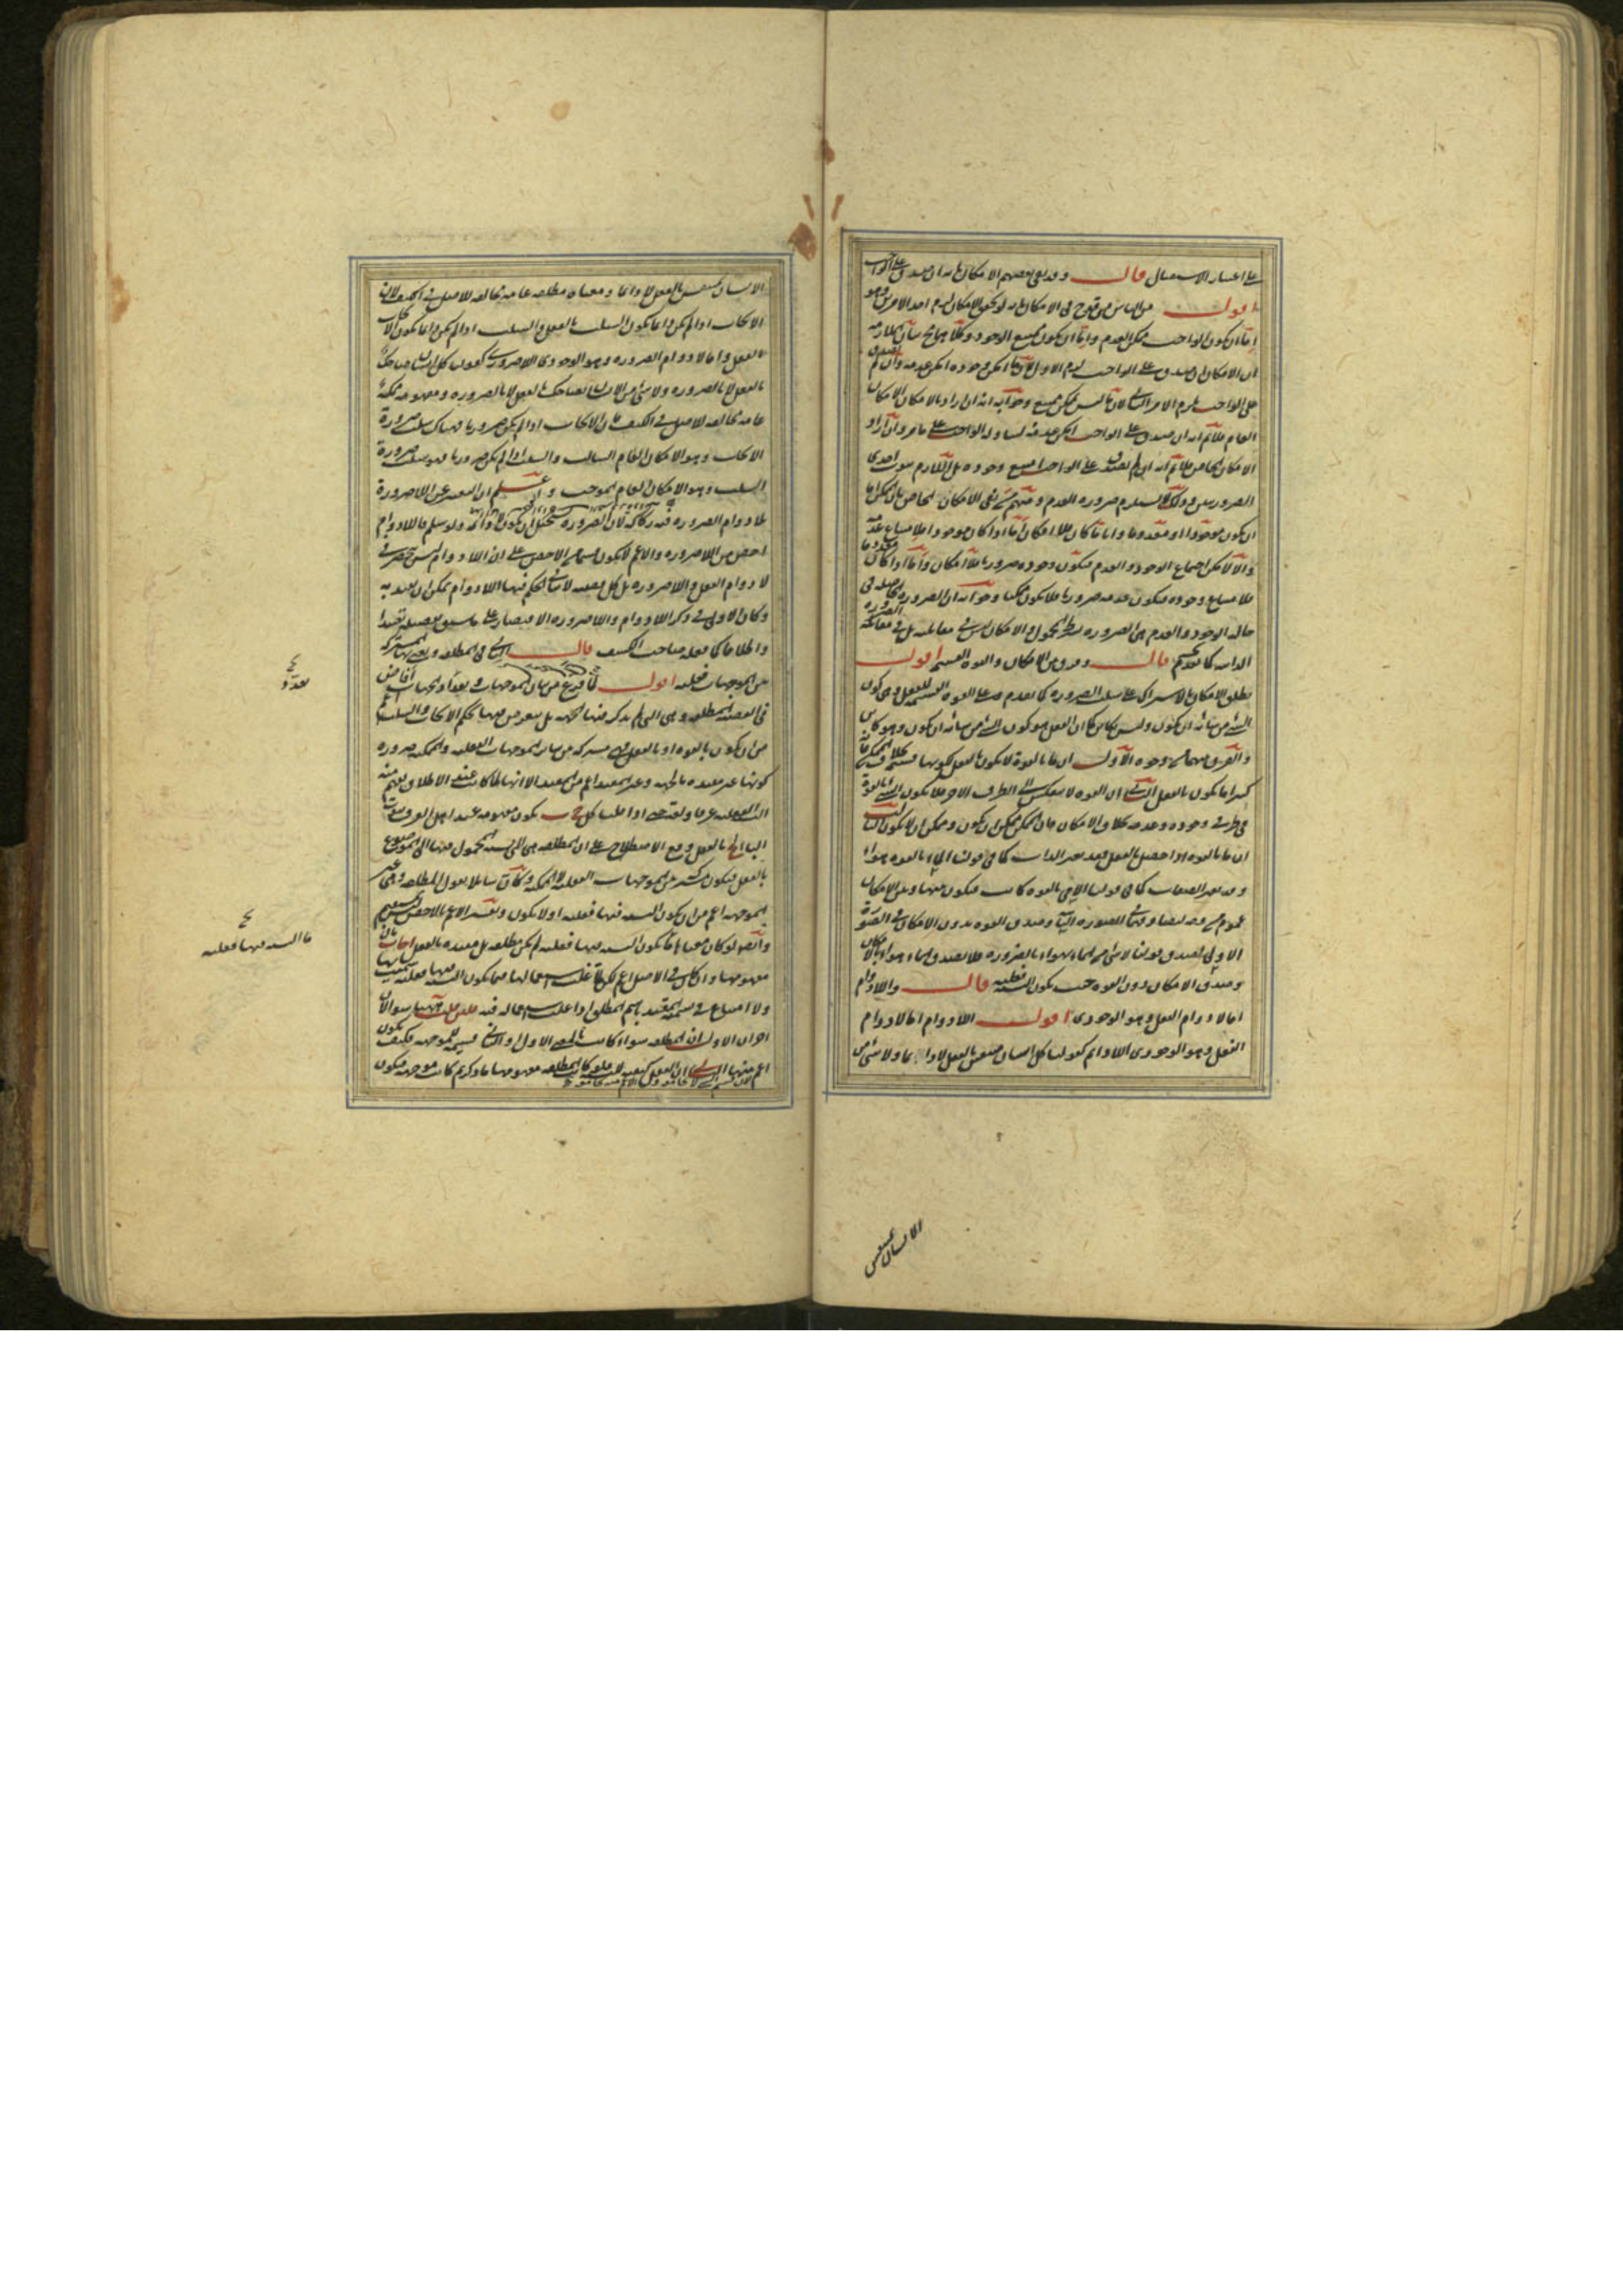 على اعتبار الاستعمال قال وقد نفى بعضهم الامكان بانه ان صدق على الواجب
اقول من الناس من قدح في الامكان بانه لو تحقق الامكان لزم احد الامرين وهو
اما ان يكون الواجب ممكن العدم واما ان يكون ممتنع الوجود وكلاهما مح بيان الملازمة
ان الامكان ان صدق على الواجب لزم الاول لان ما امكن وجوده امكن عدمه وان لم يصدق
على الواجب يلزم الامر الثاني لان ما ليس بممكن ممتنع وجوابه انه ان اراد بالامكان الامكان
العام فلانم انه ان صدق على الواجب امكن عدمه لتناوله الواجب على ما مر وان اراد
الامكان الخاص فلانم انه ان لم يصدق على الواجب امتنع وجوده بل اللازم ثبوت احدى
الضرورتين وذلك لا يستلزم ضرورة العدم ومنهم من نفى الامكان الخاص بان الممكن اما
ان يكون موجودا او معدوما واياما كان فلا امكان اما اذا كان موجودا فلامتناع عدمه
والا لامكن اجتماع الوجود والعدم فيكون وجوده ضروريا فلا امكان واما اذا كان معدوما
فلامتناع وجوده فيكون عدمه ضروريا فلا يكون ممكنا وجوابه ان الضرورة الحاصلة في
حالة الوجود والعدم هي الضرورة بشرط المحمول والامكان ليس في مقابلته بل في مقابلة الضرورة
الذاتية كما تقدم قال وفرق بين الامكان والقوة القسيم اقول
يطلق الامكان بالاشتراك على سلب الضرورة كما تقدم وعلى القوة القسيمة للفعل وهي كون
الشئ من شانه ان يكون وليس بكائن كما ان الفعل هو كون الشئ من شانه ان يكون وهو كائن
والفرق بينهما من وجوه الاول ان ما بالقوة لا يكون بالفعل لكونها قسيمة له بخلاف الممكن فانه
كثيرا ما يكون بالفعل الثاني ان القوة لا تنعكس الى الطرف الاخر فلا يكون الشئ بالقوة
في طرفي وجوده وعدمه بخلاف الامكان فان الممكن ممكن ان يكون وممكن ان لا يكون الثالث
ان ما بالقوة اذا حصل بالفعل فقد يغير الذات كما في قولنا الماء بالقوة هواء
وقد يغير الصفات كما في قولنا الامي بالقوة كاتب فيكون بينها وبين الامكان
عموم من وجه لتصادقهما في الصورة الثانية وصدق القوة بدون الامكان في الصورة
الاولى لصدق قولنا لا شئ من الماء بهواء بالضرورة فلا يصدق الماء هواء بالامكان
وصدق الامكان بدون القوة حيث يكون النسبة فعلية قال واللادوام
اما لادوام الفعل وهو الوجودي اقول اللادوام اما لادوام
الفعل وهو الوجودي اللادائم كقولنا كل انسان متنفس بالفعل لا دائما ولا شئ من
الانسان متنفس
الانسان بمتنفس بالفعل لا دائما ومعناه مطلقة عامة مخالفة للاصل في الكيف لان
الايجاب اذا لم يكن دائما يكون السلب بالفعل والسلب اذا لم يكن دائما يكون الايجاب
بالفعل واما لادوام الضرورة وهو الوجودي اللاضروري كقولنا كل انسان ضاحك
بالفعل لا بالضرورة ولا شئ من الانسان بضاحك بالفعل لا بالضرورة ومفهومه ممكنة
عامة مخالفة للاصل في الكيف فان الايجاب اذا لم يكن ضروريا فهناك سلب ضرورة
الايجاب وهو الامكان العام السالب والسلب اذا لم يكن ضروريا فهو سلب ضرورة
السلب وهو الامكان العام الموجب واعلم ان التعبير عن اللاضرورة
بلادوام الضرورة فيه ركاكة لان الضرورة يستحيل ان يكون لا دائمة ولو سلم فاللادوام
اخص من اللاضرورة والاعم لا يكون قسما من الاخص على ان اللادوام ليس ينحصر في
لادوام الفعل واللاضرورة بل كل قضية لا ينافي الحكم فيها اللادوام يمكن ان يقيد به
وكان الاولى في ذكر اللادوام واللاضرورة الاقتصار على ما سبق تفصيله تقييدا
واطلاقا كما فعله صاحب الكشف قال الثاني في المطلقة ويعنى بها المشتركة
بين الموجهات فعلية اقول لما فرغ من بيان الموجهات وتعداد الجهات افاض
في القضية المطلقة وهي التي لم يذكر فيها الجهة بل يتعرض فيها لحكم الايجاب والسلب اعم
من ان يكون بالقوة او بالفعل فهي مشتركة بين سائر الموجهات الفعلية والممكنة ضرورة
كونها غير مقيدة بالجهة وغير المقيد اعم من المقيد الا انها لما كانت عند الاطلاق يفهم منه
النسبة الفعلية عرفا ولغة حتى اذا قلنا كل ج ب يكون مفهومه عند اهل العرف ثبوت
الباء لج بالفعل وقع الاصطلاح على ان المطلقة هي التي نسبة المحمول فيها الى الموضوع
بالفعل فيكون مشتركة بين الموجهات الفعلية لا الممكنة
الموجهة اعم من ان يكون النسبة فيها فعلية او لا يكون وتفسير الاعم بالاخص ليس بمستقيم
وايضا لو كان معناها ما يكون النسبة فيها فعلية لم يكن مطلقة بل مقيدة بالفعل اجاب بان
مفهومها وان كان في الاصل اعم لكن لما غلب استعمالها فيما يكون النسبة فيها فعلية سميت بها
ولا امتناع في تسمية المقيد باسم المطلق اذا غلب استعماله فيه فان قلت ههنا سؤالان
اخران الاول ان المطلقة سواء كانت بالمعنى الاول او الثاني قسيمة للموجهة فكيف يكون
اعم منها الثاني ان الفعل كيفية للنسبة فلو كان المطلقة مفهومها ما ذكرتم كانت موجهة فيكون
ما النسبة فيها فعلية